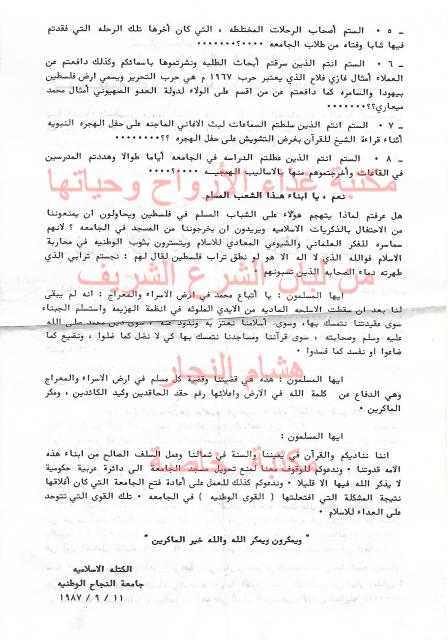 ـ ٥ ـ الستم أصحاب الرحلات المختلطه ، التي كان أخرها تلك الرحله التي فقدتم
فيها شابا وفتاه من طلاب الجامعه ٠٠٠٠؟٠٠٠٠٠٠٠
ـ ٦ ـ الستم انتم الذين سرقتم أبحاث الطلبه ونشرتموها باسمائكم وكذلك دافعتم عن
العملاء أمثال غازي فلاح الذي يعتبر حرب ١٩٦٧ م هي حرب التحرير ويسمي ارض فلسطين
بيهودا والسامره كما دافعتم عن من اقسم على الولاء لدولة العدو الصهيوني أمثال محمد
ميعاري؟؟٠٠٠٠٠٠٠
ـ ٧ ـ الستم انتم الذين سلطتم السماعات لبث الاغاني الماجنه على حفل الهجره النبويه
أثناء قراءة الشيخ للقرآن بغرض التشويش على حفل الهجره ؟؟٠٠٠٠٠٠٠
ـ ٨ ـ الستم انتم الذين عطلتم الدراسه في الجامعه أياما طوالا وهددتم المدرسين
في القاعات وأخرجتموهم منها بالاساليب الهمجيه ٠٠٠٠؟٠٠٠٠
مكتبة غذاء الأرواح وحياتها
نعم ، يا ابناء هذا الشعب المسلم
هل عرفتم لماذا يتهجم هؤلاء على الشباب المسلم في فلسطين ويحاولون ان يمنعوننا
من الاحتفال بالذكريات الاسلاميه ويريدون ان يخرجوننا من المسجد في الجامعه ؟ لانهم
سماسره للفكر العلماني والشيوعي المعادي للاسلام ويتسترون بثوب الوطنيه في محاربة
الاسلام فوالله الذي لا اله الا هو لو نطق تراب فلسطين لقال لهم : نجستم ترابي الذي
طهرته دماء الصحابه الذين تسبونهم ٠
من لبان الشرع الشريف
ايها المسلمون : يا أتباع محمد في ارض الاسراء والمعراج : انه لم يبقى
لنا بعد ان سقطت الاسلحه الماديه من الايدي الملوثه في انظمة الهزيمه واستسلم الجبناء
سوى عقيدتنا نتمسك بها، وسوى أسلامنا نعتز به ونذود عنه ، سوى دين محمد صلى الله
عليه وسلم وصحابته ، سوى قرآننا ومساجدنا نتمسك بها كي لا نضل كما ضلوا ، ونضيع كما
ضاعوا او نفسد كما فسدوا ٠
هشام النجار
ايها المسلمون : هذه هي قضيتنا وقضية كل مسلم في ارض الاسراء والمعراج
وهي الدفاع عن كلمة الله في الارض واعلائها رغم حقد الحاقدين وكيد الكائدين ، ومكر
الماكرين ٠
ايها المسلمون :
مكتبة خاصة
اننا نناديكم والقرآن في يميننا والسنة في شمالنا وعمل السلف الصالح من ابناء هذه
الامه قدوتنا ٠ وندعوكم للوقوف معنا لمنع تحويل مسجد الجامعه الى دائرة عربية حكومية
لا يذكر الله فيها الا قليلا ٠ وندعوكم كذلك للعمل على أعادة فتح الجامعه التي كان أغلاقها
نتيجة المشكلة التي افتعلتها ( القوى الوطنيه ) في الجامعه ٠ تلك القوى التي تتوحد
على العداء للاسلام ٠
" ويمكرون ويمكر الله والله خير الماكرين "
الكتله الاسلاميه
جامعة النجاح الوطنيه
١١ / ٩ / ١٩٨٧